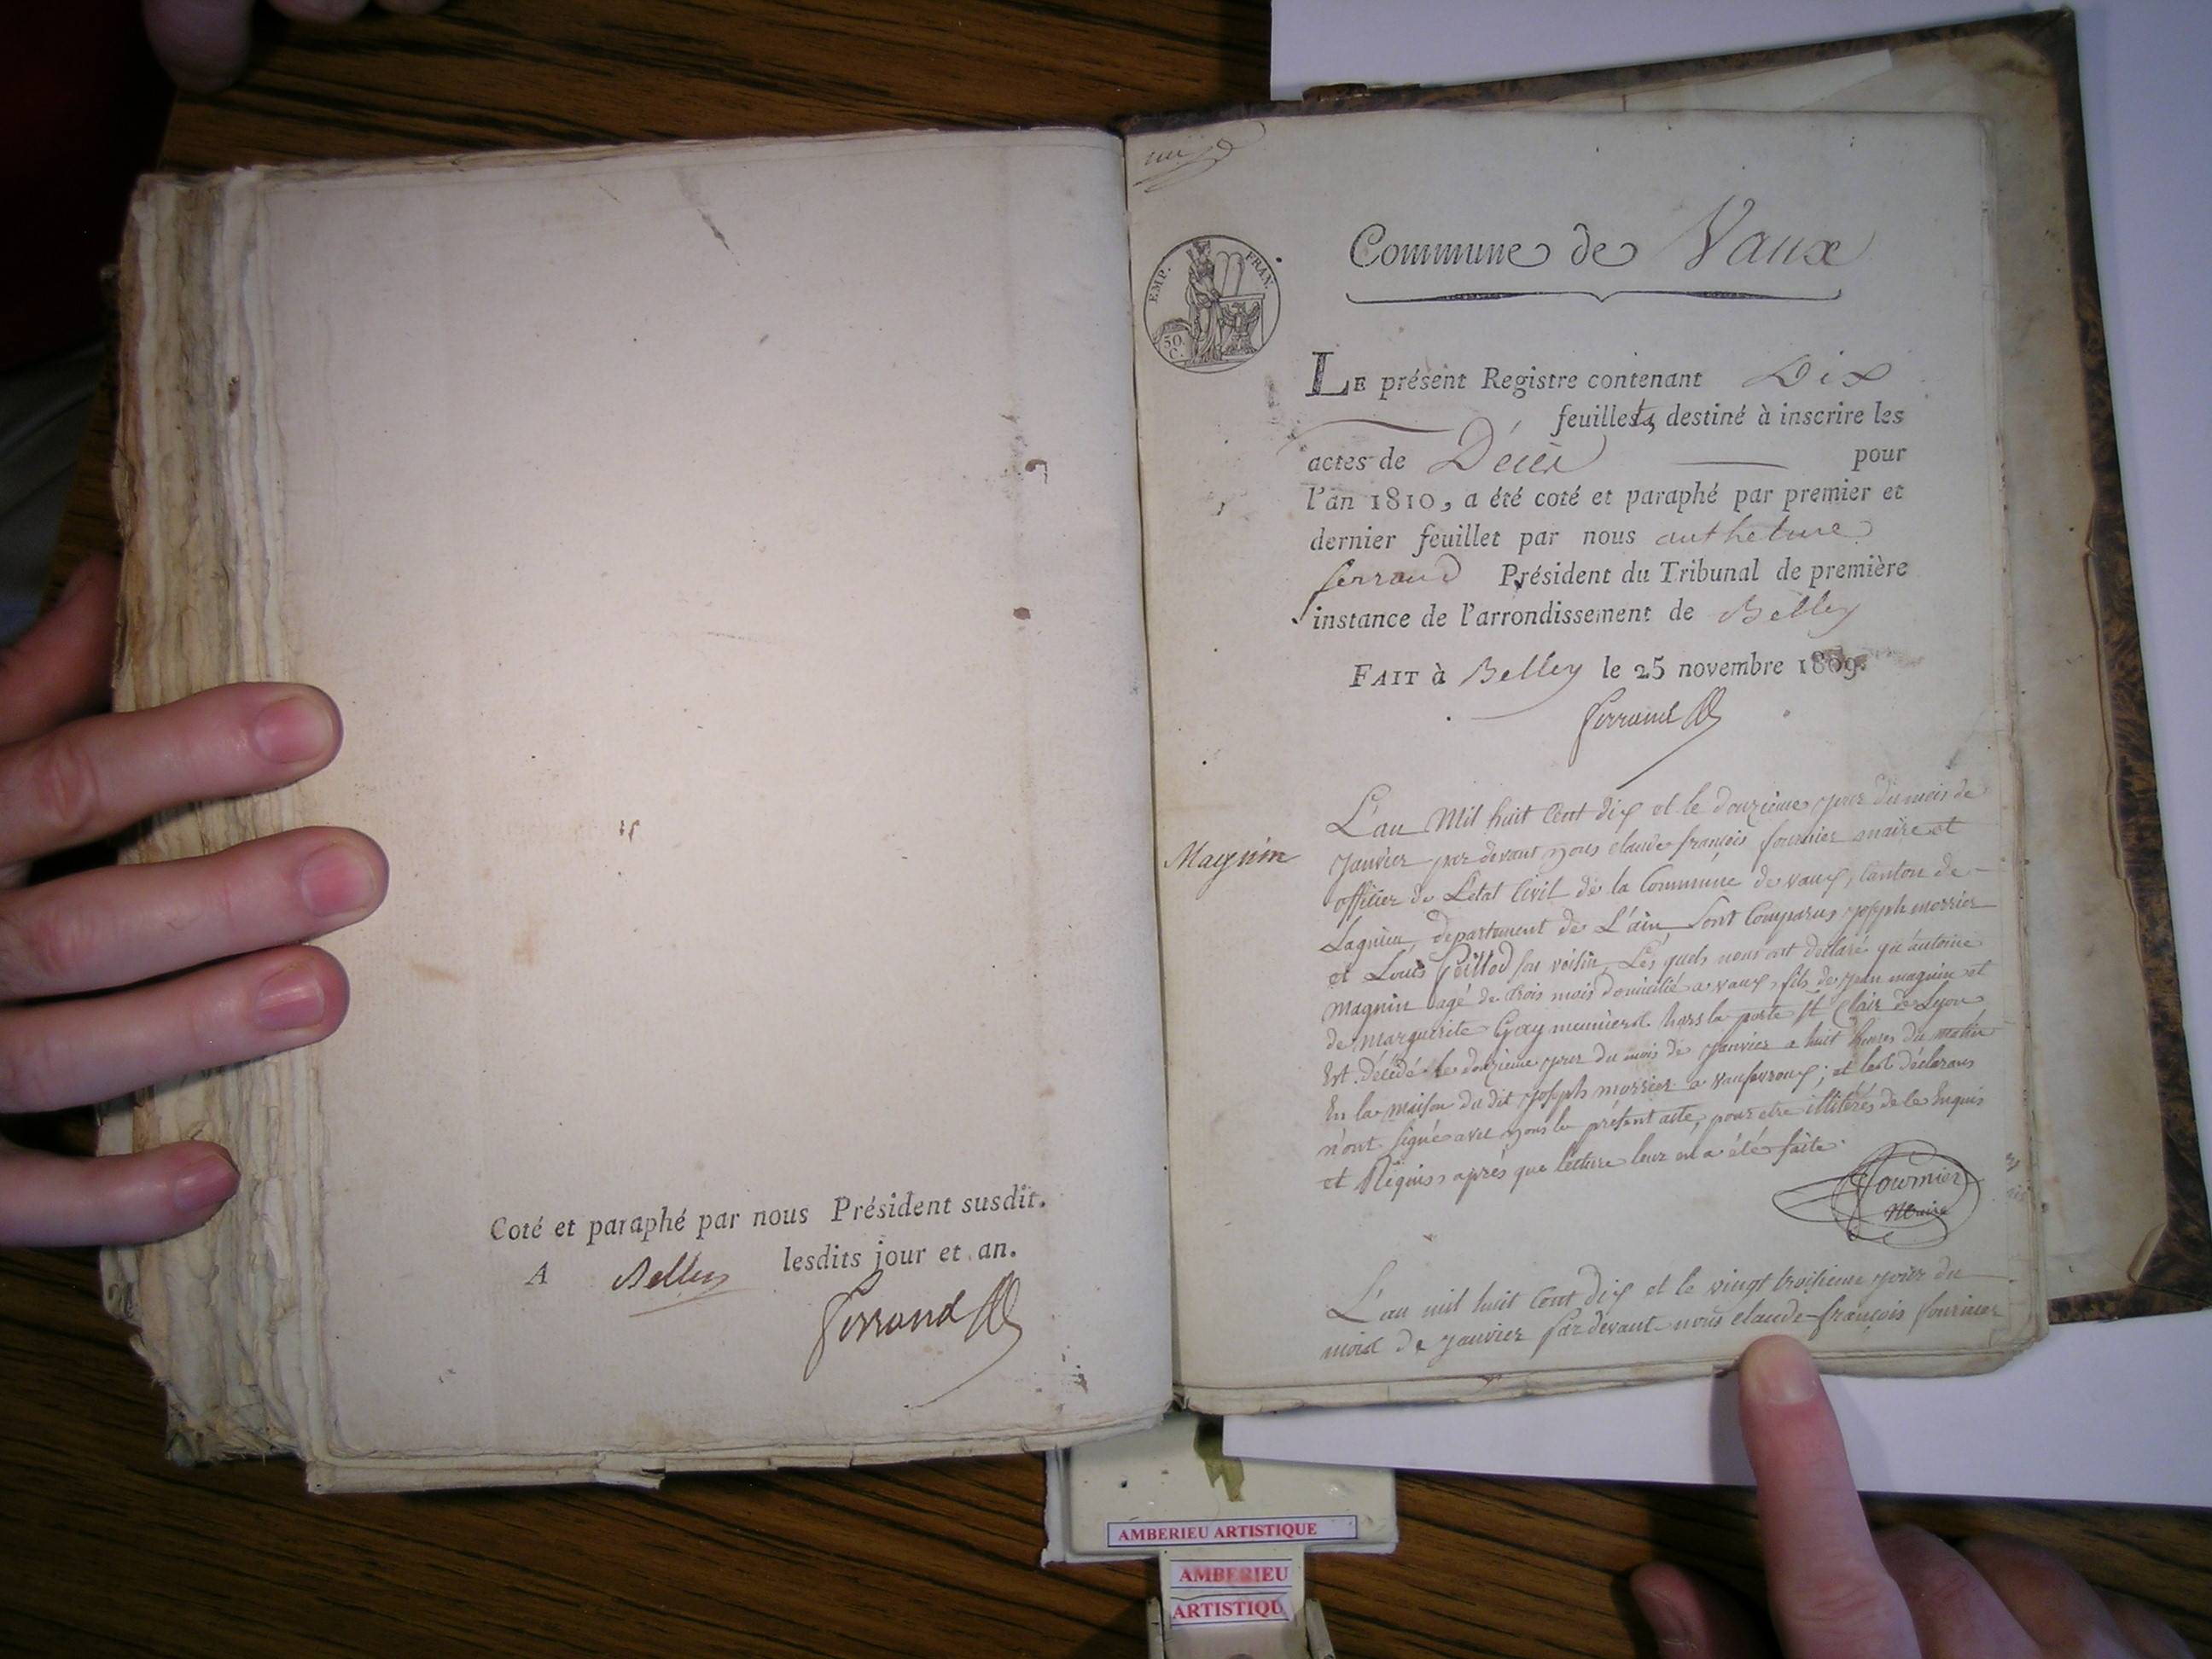 Coté et paraphé par nous Président susdit.
A Belley lesdits jour et an.
Ferrand
EMP. FRAN.
50.
C.
Commune de Vaux
LE présent Registre contenant Dix
feuillets, destiné à inscrire les
actes de Décès pour
l'an 1810, a été coté et paraphé par premier et
dernier feuillet par nous anthelme
ferrand Président du Tribunal de première
instance de l'arrondissement de Belley
FAIT à Belley le 25 novembre 1809.
Ferrand
Magnin
L'an Mil huit Cent dix et le douzieme jour du mois de
Janvier par devant nous claude françois fournier maire et
officier de L'etat Civil de la Commune de vaux, Canton de
Lagnieu, departement de L'ain, Sont Comparus joseph morrier
et Louis Peillod son voisin, Les quels nous ont déclaré qu'antoine
Magnin agé de trois mois domicilié a vaux, fils de jean magnin et
de marguerite Gay hors la porte St Clair de Lyon
Est décédé le douzieme jour du mois de janvier a huit heures du matin
En la maison du dit joseph morrier a ; et les déclarans
n'ont signé avec nous le présent acte, pour etre illitérés de ce Enquis
et Réquis, après que lecture leur en a été faite.
Fournier
Maire
L'an mil huit Cent dix et le vingt troisieme jour du
mois de Janvier Par devant nous claude françois fournier
AMBERIEU ARTISTIQUE
AMBERIEU
ARTISTIQU